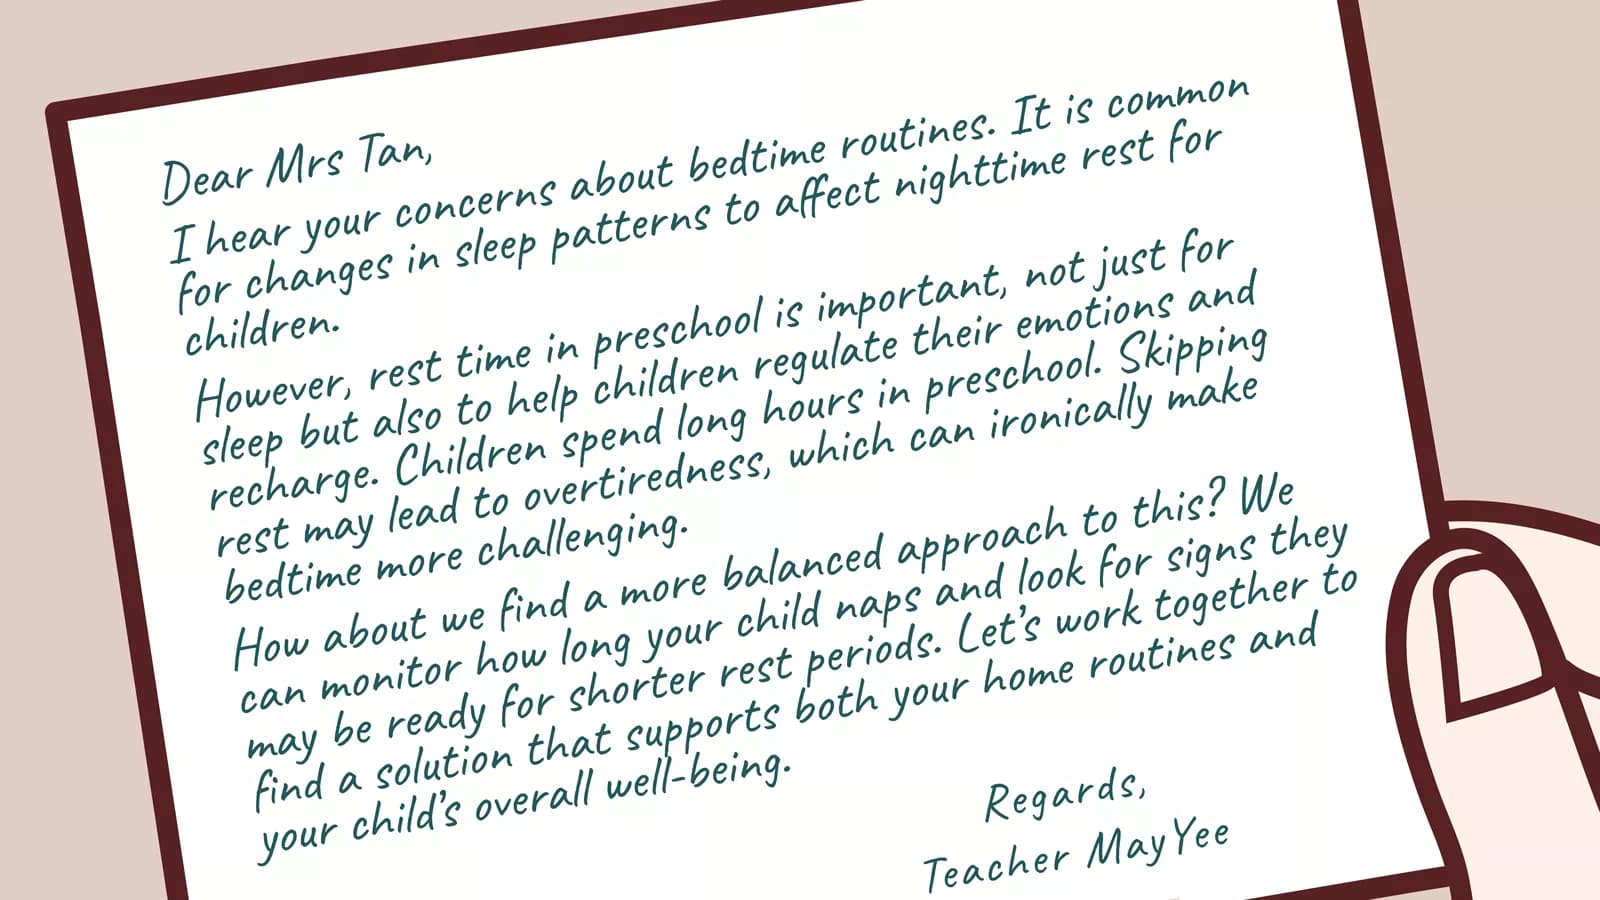 Dear Mrs Tan,
I hear your concerns about bedtime routines. It is common
for changes in sleep patterns to affect nighttime rest for
children.
However, rest time in preschool is important, not just for
sleep but also to help children regulate their emotions and
recharge. Children spend long hours in preschool. Skipping
rest may lead to overtiredness, which can ironically make
bedtime more challenging.
How about we find a more balanced approach to this? We
can monitor how long your child naps and look for signs they
may be ready for shorter rest periods. Let's work together to
find a solution that supports both your home routines and
your child's overall well-being.
Regards,
Teacher MayYee